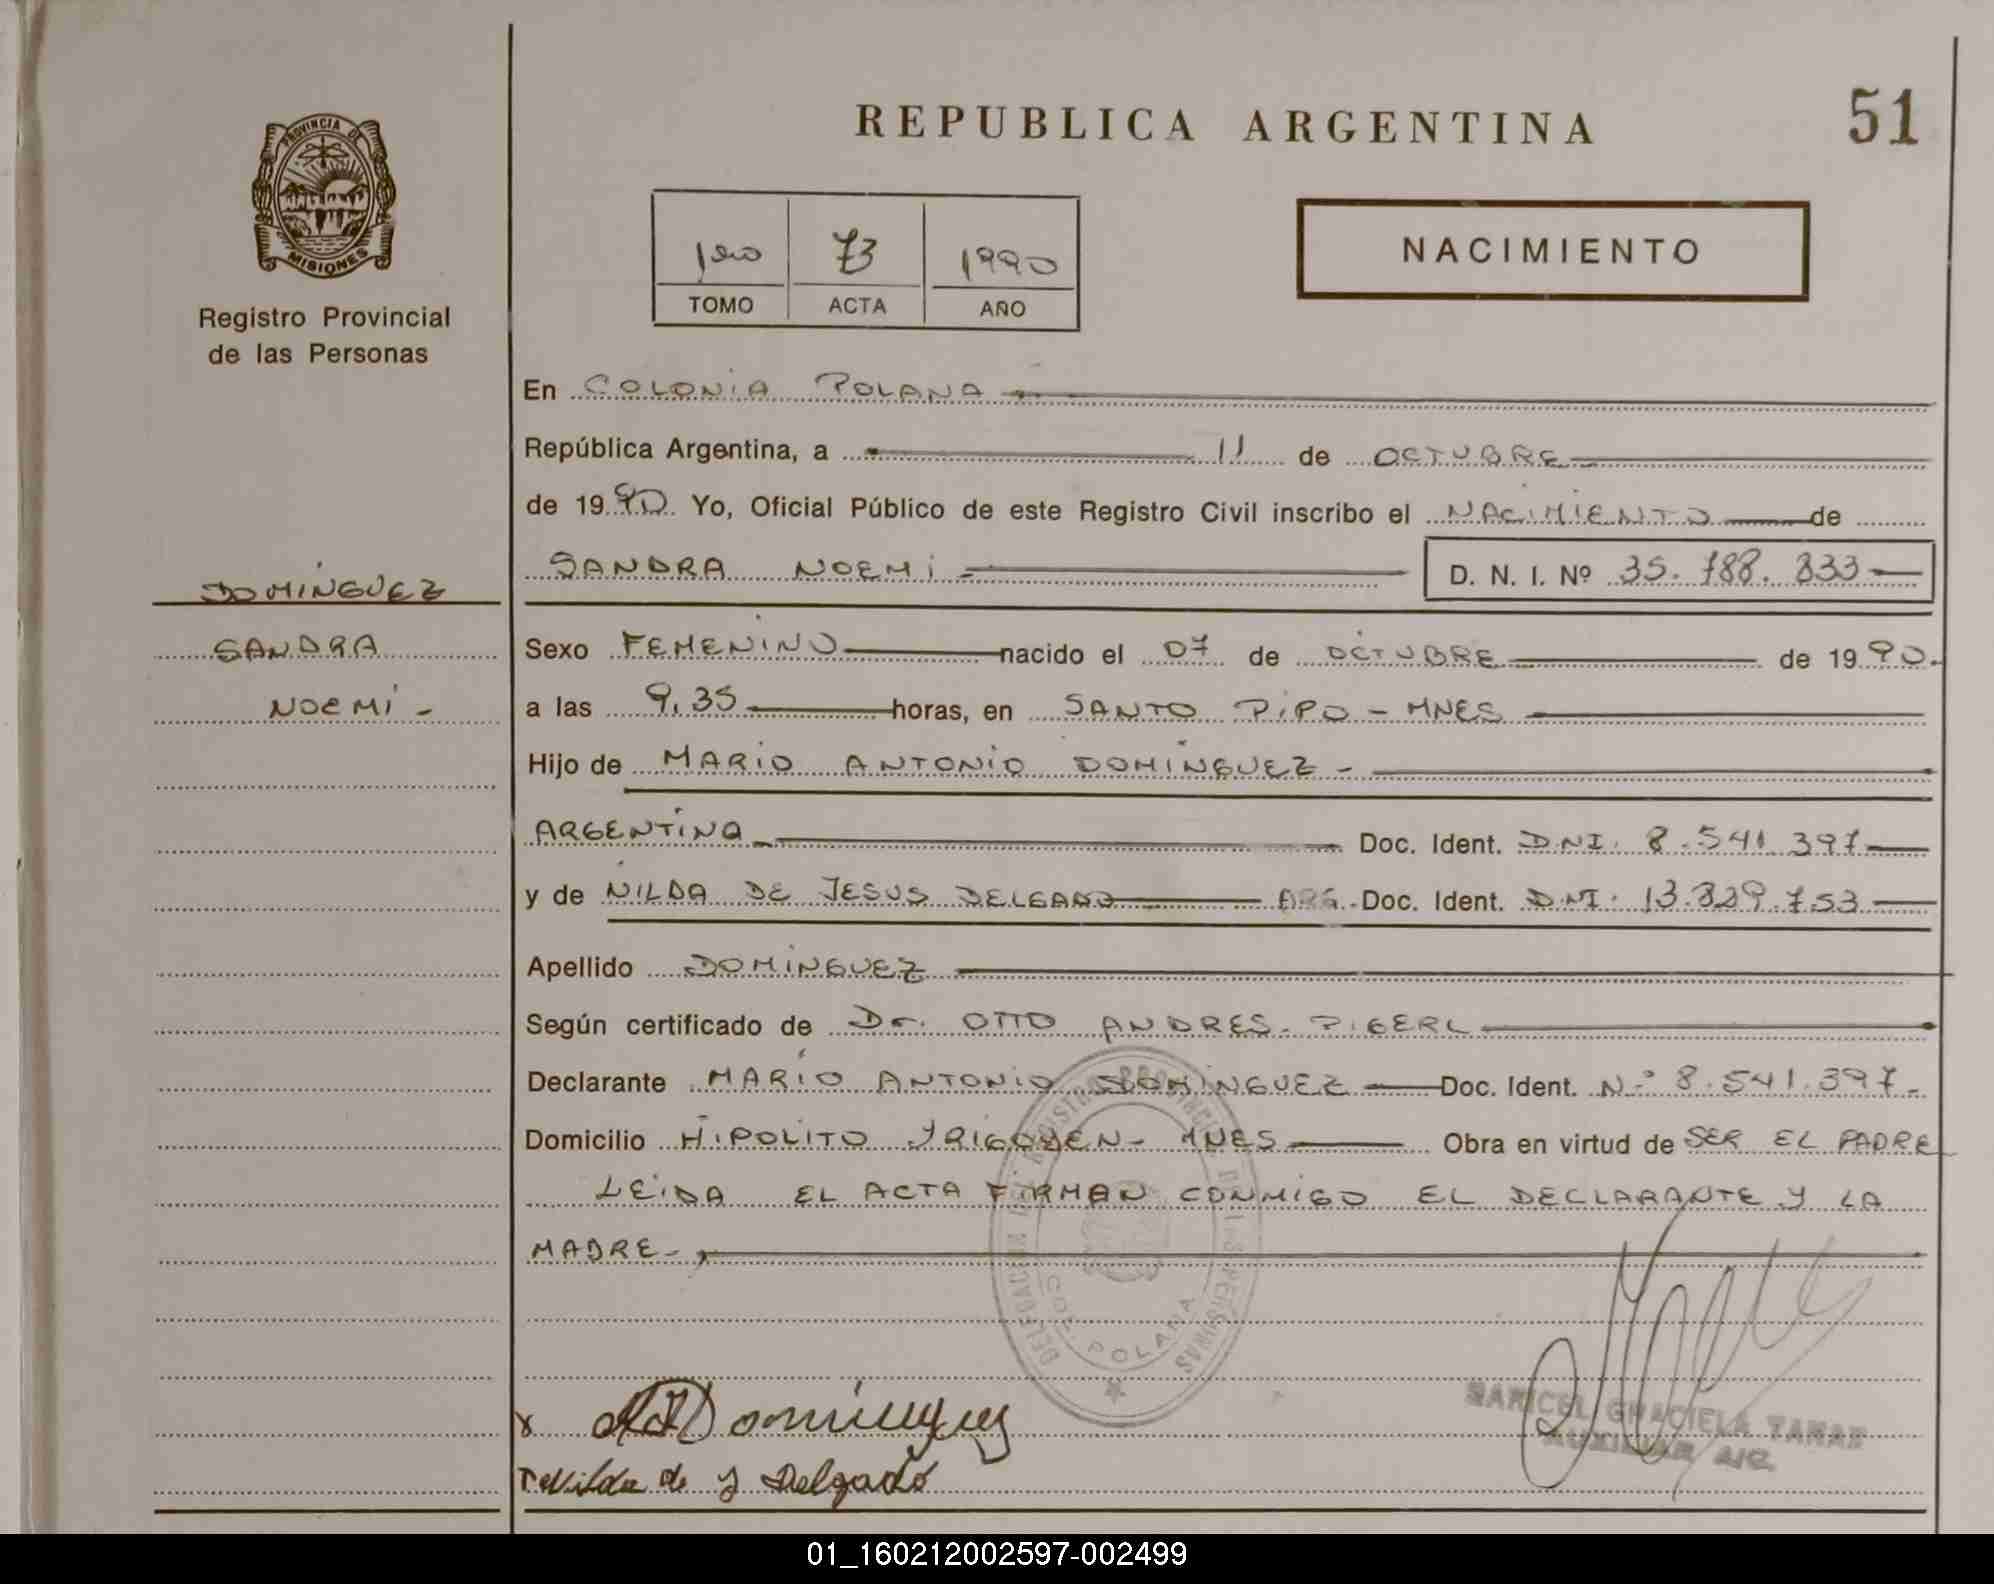 REPUBLICA ARGENTINA
51
PROVINCIA DE
MISIONES
Registro Provincial
de las Personas
1ero 73 1990
TOMO ACTA AÑO
NACIMIENTO
En COLONIA POLANA
República Argentina, a 11 de OCTUBRE
de 1990 Yo, Oficial Público de este Registro Civil inscribo el NACIMIENTO de
SANDRA NOEMI D. N. I. Nº 35.788.833
DOMINGUEZ
SANDRA
NOEMI -
Sexo FEMENINO nacido el 07 de OCTUBRE de 1990.
a las 9,35 horas, en SANTO PIPO - MNES
Hijo de MARIO ANTONIO DOMINGUEZ -
ARGENTINA Doc. Ident. DNI. 8.541.397
y de NILDA DE JESUS DELGADO ARG. Doc. Ident. DNI. 13.829.753
Apellido DOMINGUEZ
Según certificado de Dr. OTTO ANDRES PIGERL
Declarante MARIO ANTONIO DOMINGUEZ Doc. Ident. Nº 8.541.397.
Domicilio HIPOLITO YRIGOYEN - MNES Obra en virtud de SER EL PADRE
LEIDA EL ACTA FIRMAN CONMIGO EL DECLARANTE Y LA
MADRE -
DELEGACION DEL REGISTRO PROVINCIAL DE LAS PERSONAS
COL. POLANA
x Dominguez
Nilda de J Delgado
MARICEL GRACIELA
AUXILIAR
01_160212002597-002499